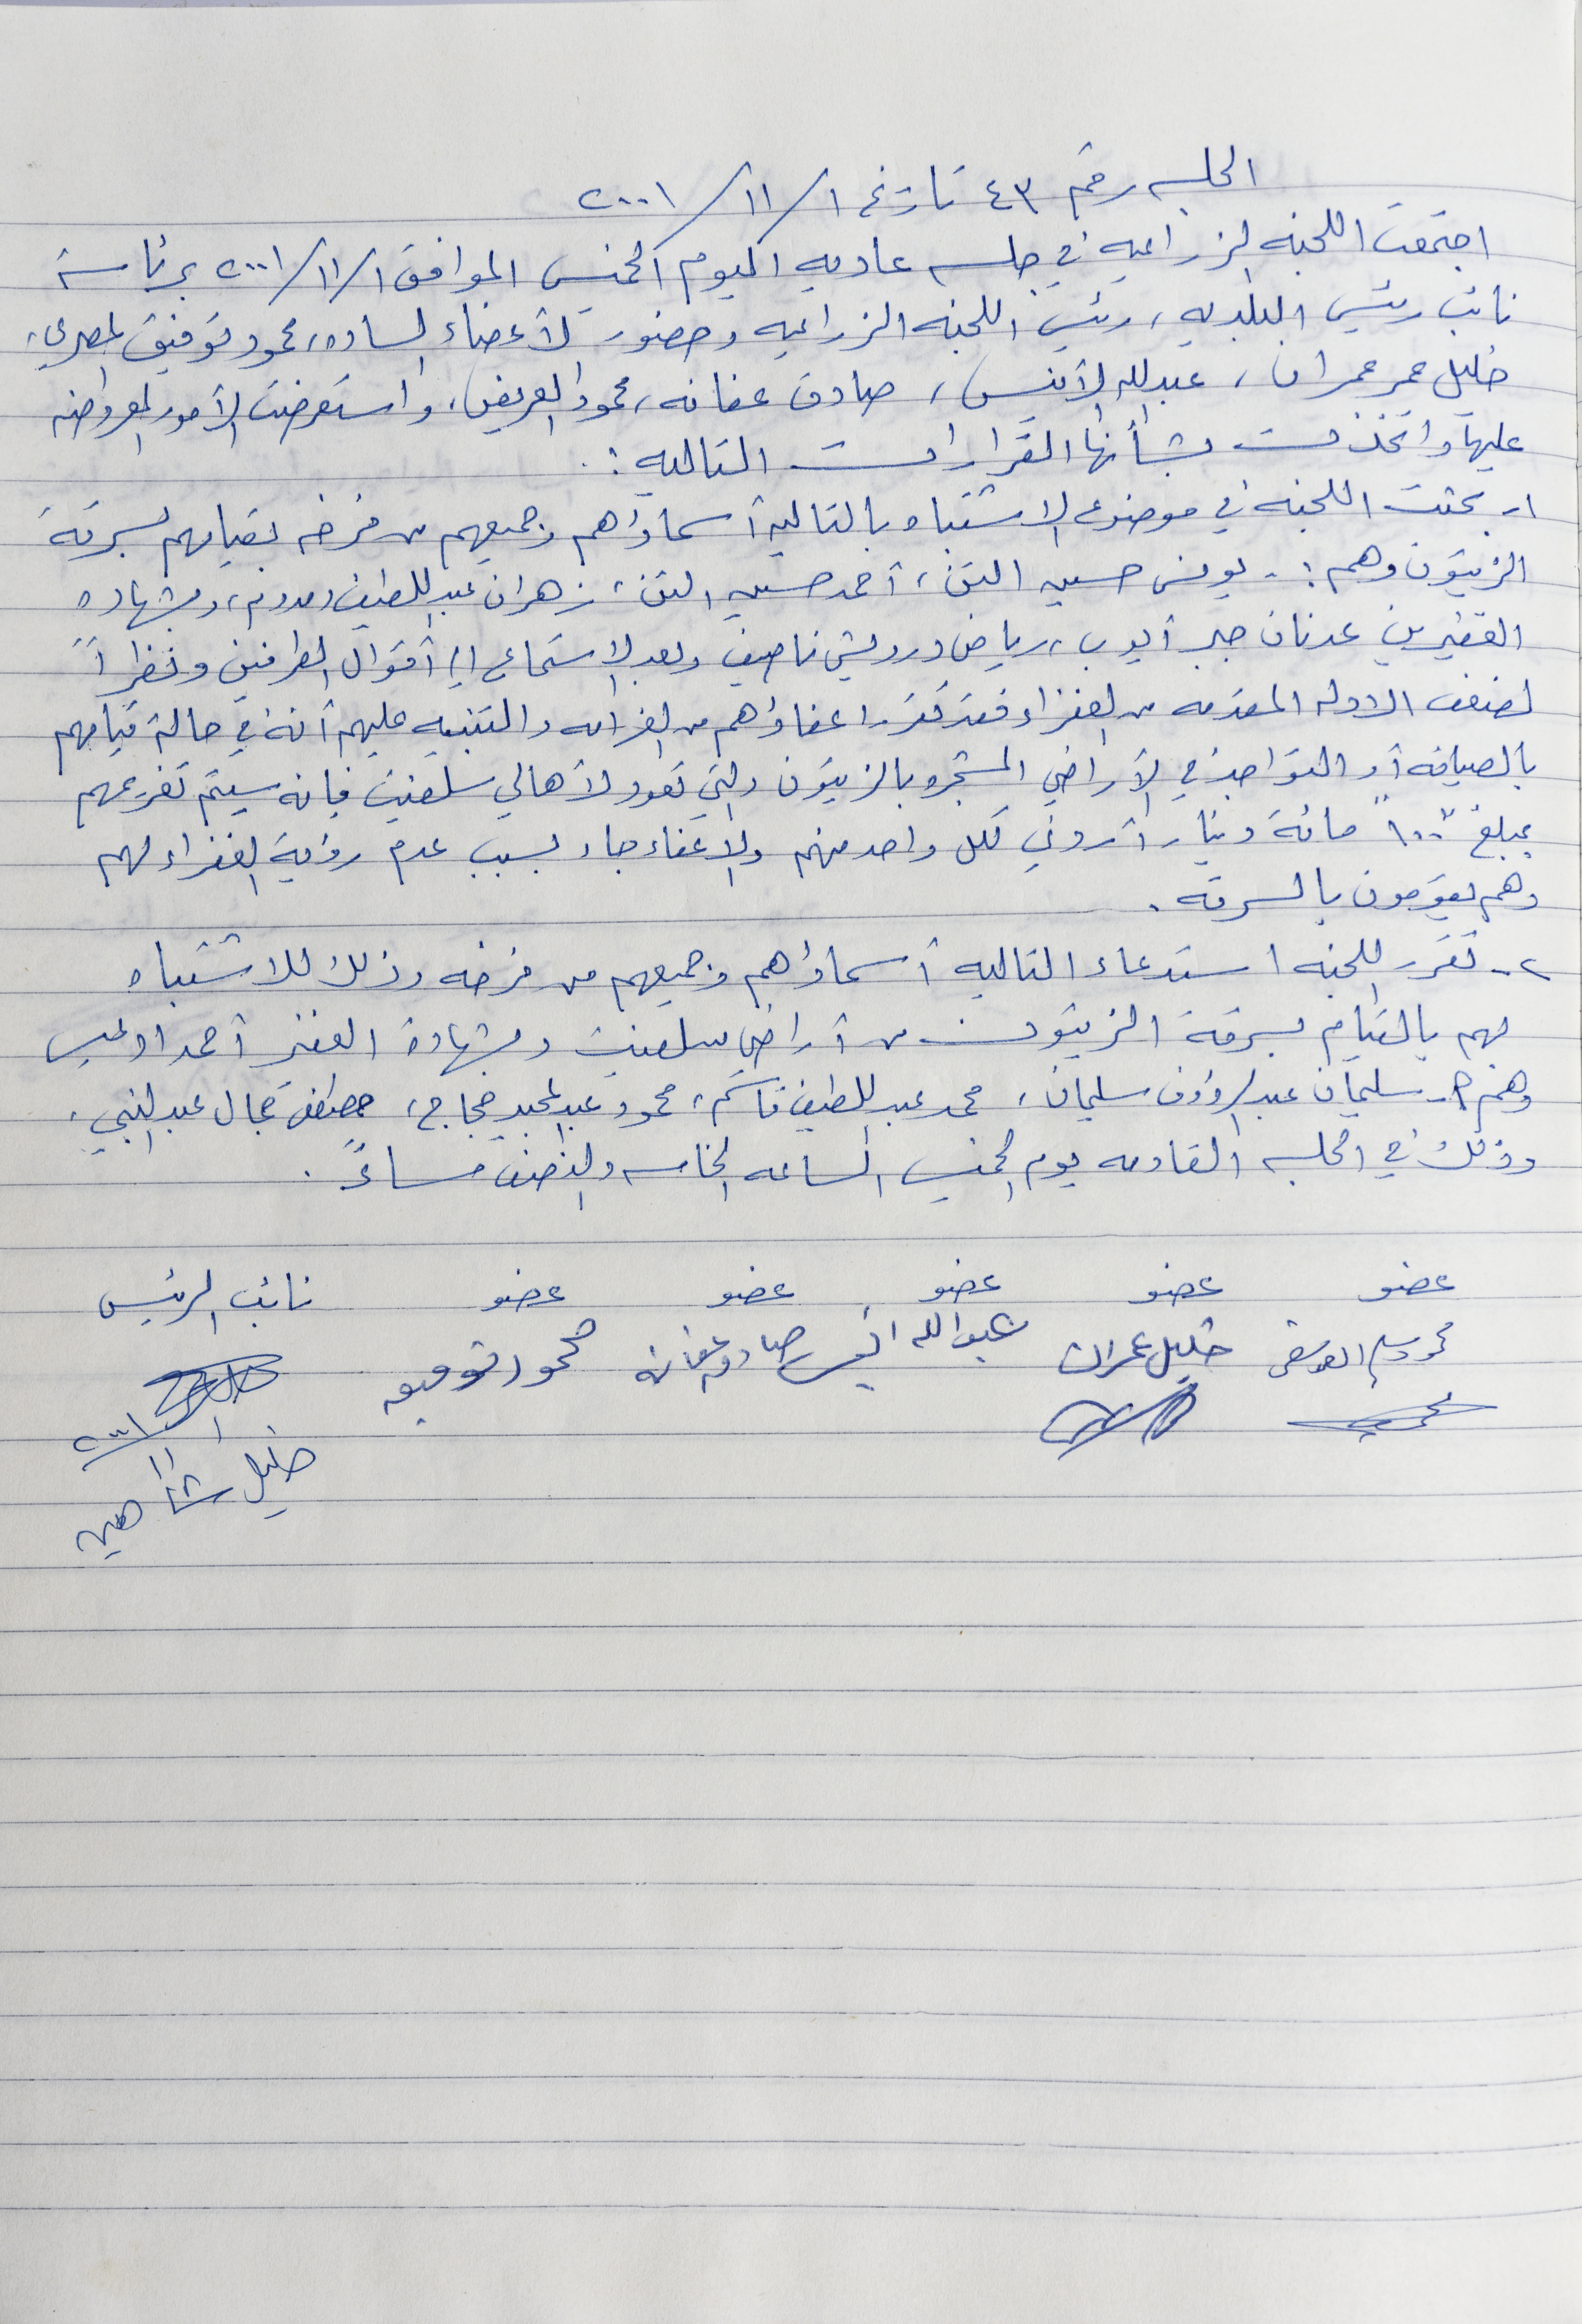 الجلسه رقم ٤٣ تاريخ ١/١١/٢٠٠١
اجتمعت اللجنه الزراعيه في جلسه عاديه اليوم الخميس الموافق ٢٠٠١/١١/١ برئاسة
نائب رئيس البلديه، رئيس اللجنه الزراعيه وحضور الأعضاء الساده، محمود توفيق المصري،
خليل عمر عمران، عبدالله الأقيس، صادق عفانه، محمود العريض، واستعرضت الأمور المعروضه
عليها واتخذت بشأنها القرارات التاليه:.
١- بحثت اللجنه في موضوع الاشتباه بالتاليه أسماؤهم وجميعهم من فرخه بقيامهم بسرقة
الزيتون وهم:- يونس حسين التن، أحمد حسين التن، زهران عبداللطيف، وبشهاده
الغفيرين عدنان جبر أيوب، رياض درويش ناصيف وبعد الاستماع إلى أقوال الطرفين ونظراً
لضعف الادله المقدمه من الغفراء فقد تقرر اعفاؤهم من الغرامه والتنبيه عليهم أنه في حالة قيامهم
بالصيافه أو التواجد في الأراضي المشجره بالزيتون والتي تعود لأهالي سلفيت فإنه سيتم تغريمهم
بمبلغ "١٠٠" مائة دينار أردني لكل واحد منهم والاعفاء جاء بسبب عدم رؤية الغفراء لهم
وهم يقومون بالسرقه.
٢- تقرر اللجنه استدعاء التاليه أسماؤهم وجميعهم من فرخه وذلك للاشتباه
لهم بالقيام بسرقة الزيتون من أراضي سلفيت وبشهادة الغفير أحمد
وهم :- سليمان عبدالرؤوف سليمان، محمد عبداللطيف قاسم، محمود عبدالمجيد حجاج، مصطفى جمال عبدالنبي،
وذلك في الجلسه القادمه يوم الخميس الساعه الخامسه والنصف مساءً.
عضو عضو عضو عضو عضو نائب الرئيس
خليل عمران عبدالله صادق عفانه محمود توفيق
٢٠٠١/١١/١
خليل شاهين